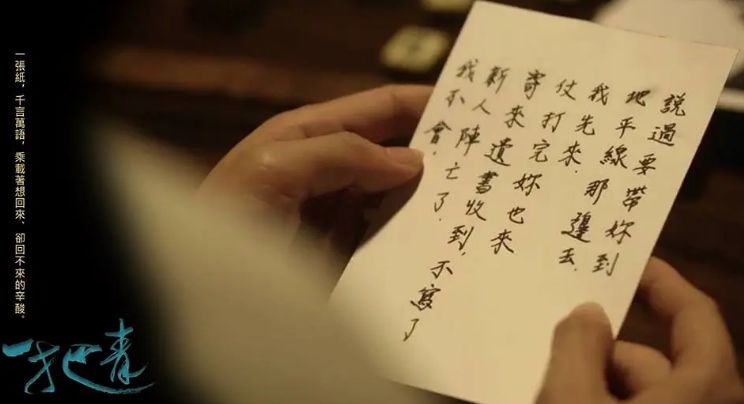 說過要帶妳到
地平線那邊去.
我先來.
仗打完妳也來
寄來遺書收到,不寫了
新人陣亡了.
我不會.
一張紙，千言萬語，乘載著想回來、卻回不來的辛酸。
一把青